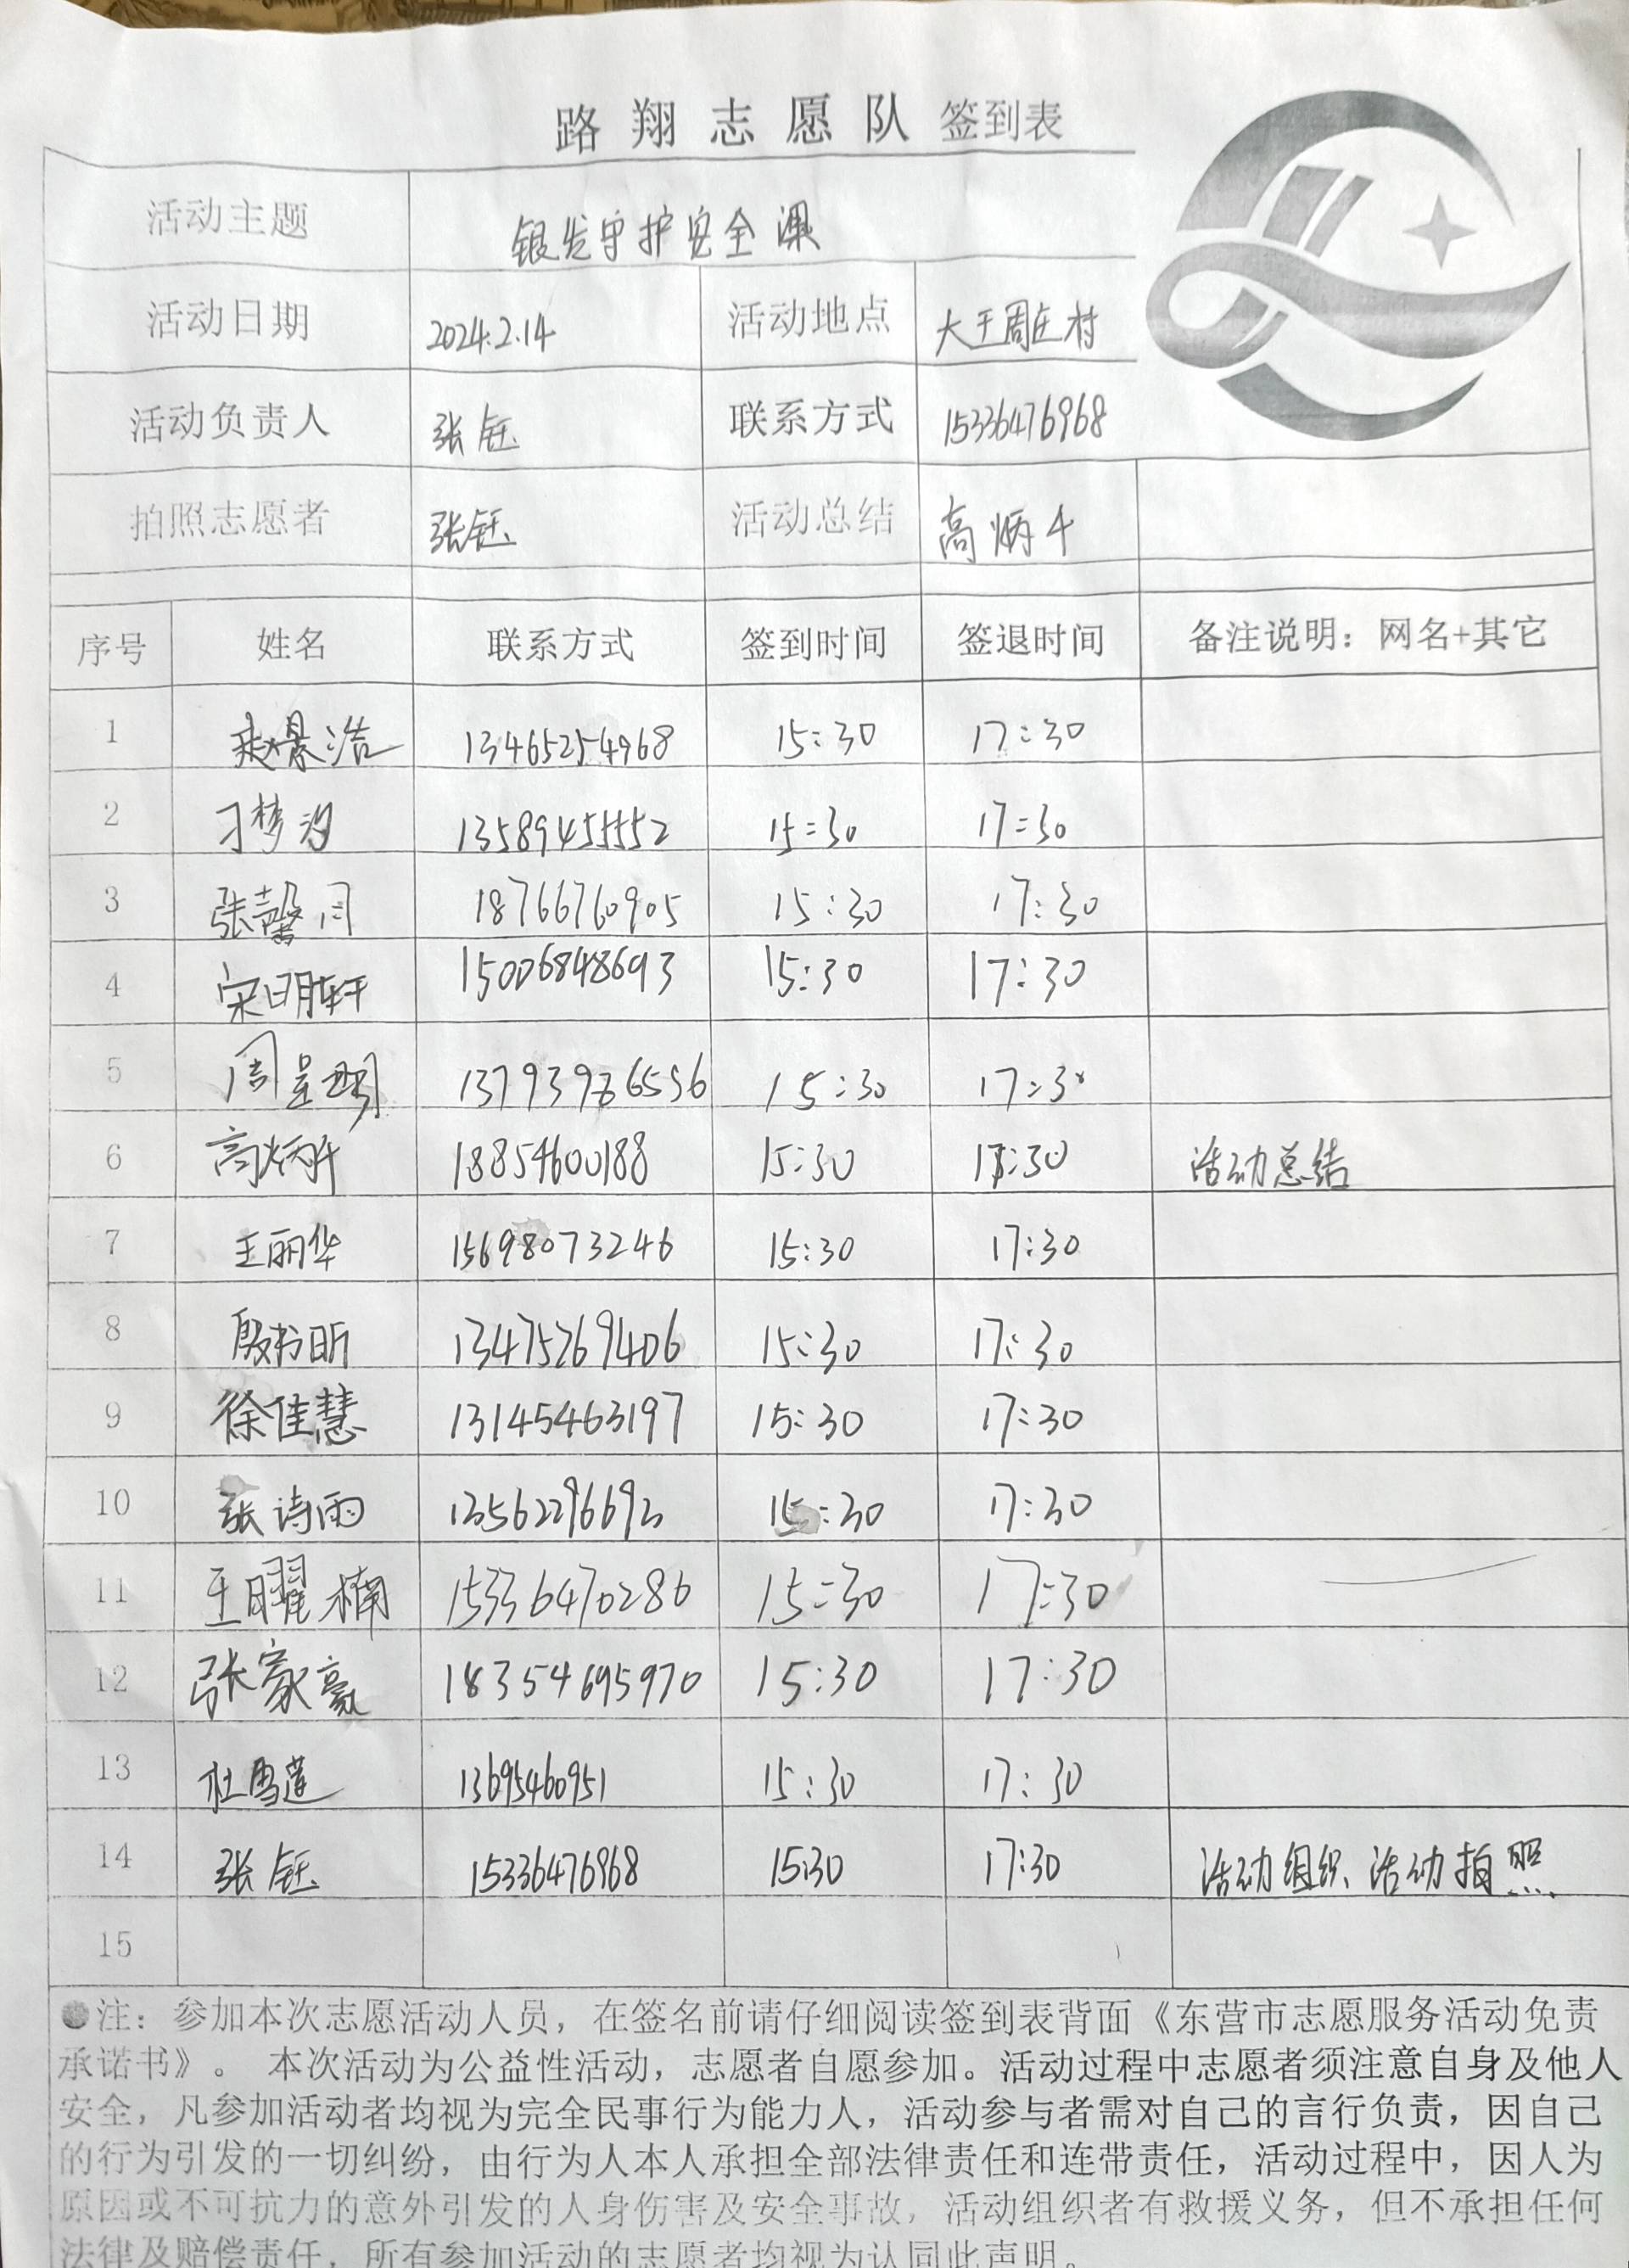 路翔志愿队 签到表
活动主题 银发守护安全课
活动日期 2024.2.14 活动地点 大王周庄村
活动负责人 张钰 联系方式 15336476968
拍照志愿者 张钰 活动总结 高炳
序号 姓名 联系方式 签到时间 签退时间 备注说明：网名+其它
1 赵景浩 13465254968 15:30 17:30
2 刁梦汐 13589455552 15:30 17:30
3 张馨月 18766760905 15:30 17:30
4 宋明轩 15006848693 15:30 17:30
5 周 15:30 17:30
6 高炳 18854600188 15:30 17:30 活动总结
7 王丽华 15698073246 15:30 17:30
8 殷书昕 13475269406 15:30 17:30
9 徐佳慧 13145463197 15:30 17:30
10 张诗雨 13562296693 15:30 17:30
11 王曜楠 15336470286 15:30 17:30
12 张家豪 18354695970 15:30 17:30
13 杜雪莲 13695460951 15:30 17:30
14 张钰 15336476968 15:30 17:30 活动组织、活动拍照
15
●注：参加本次志愿活动人员，在签名前请仔细阅读签到表背面《东营市志愿服务活动免责
承诺书》。 本次活动为公益性活动，志愿者自愿参加。活动过程中志愿者须注意自身及他人
安全，凡参加活动者均视为完全民事行为能力人，活动参与者需对自己的言行负责，因自己
的行为引发的一切纠纷，由行为人本人承担全部法律责任和连带责任，活动过程中，因人为
原因或不可抗力的意外引发的人身伤害及安全事故，活动组织者有救援义务，但不承担任何
法律及赔偿责任，所有参加活动的志愿者均视为认同此声明。